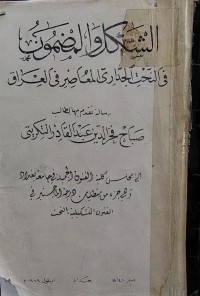 الشكل والمضمون
في النحت الجداري المعاصر في العراق
رسالة تقدم بها الطالب
صباح فخر الدين عبد القادر التكريتي
الى مجلس كلية الفنون الجميلة في جامعة بغداد
وهي جزء من متطلبات درجة الماجستير في
الفنون التشكيلية النحت